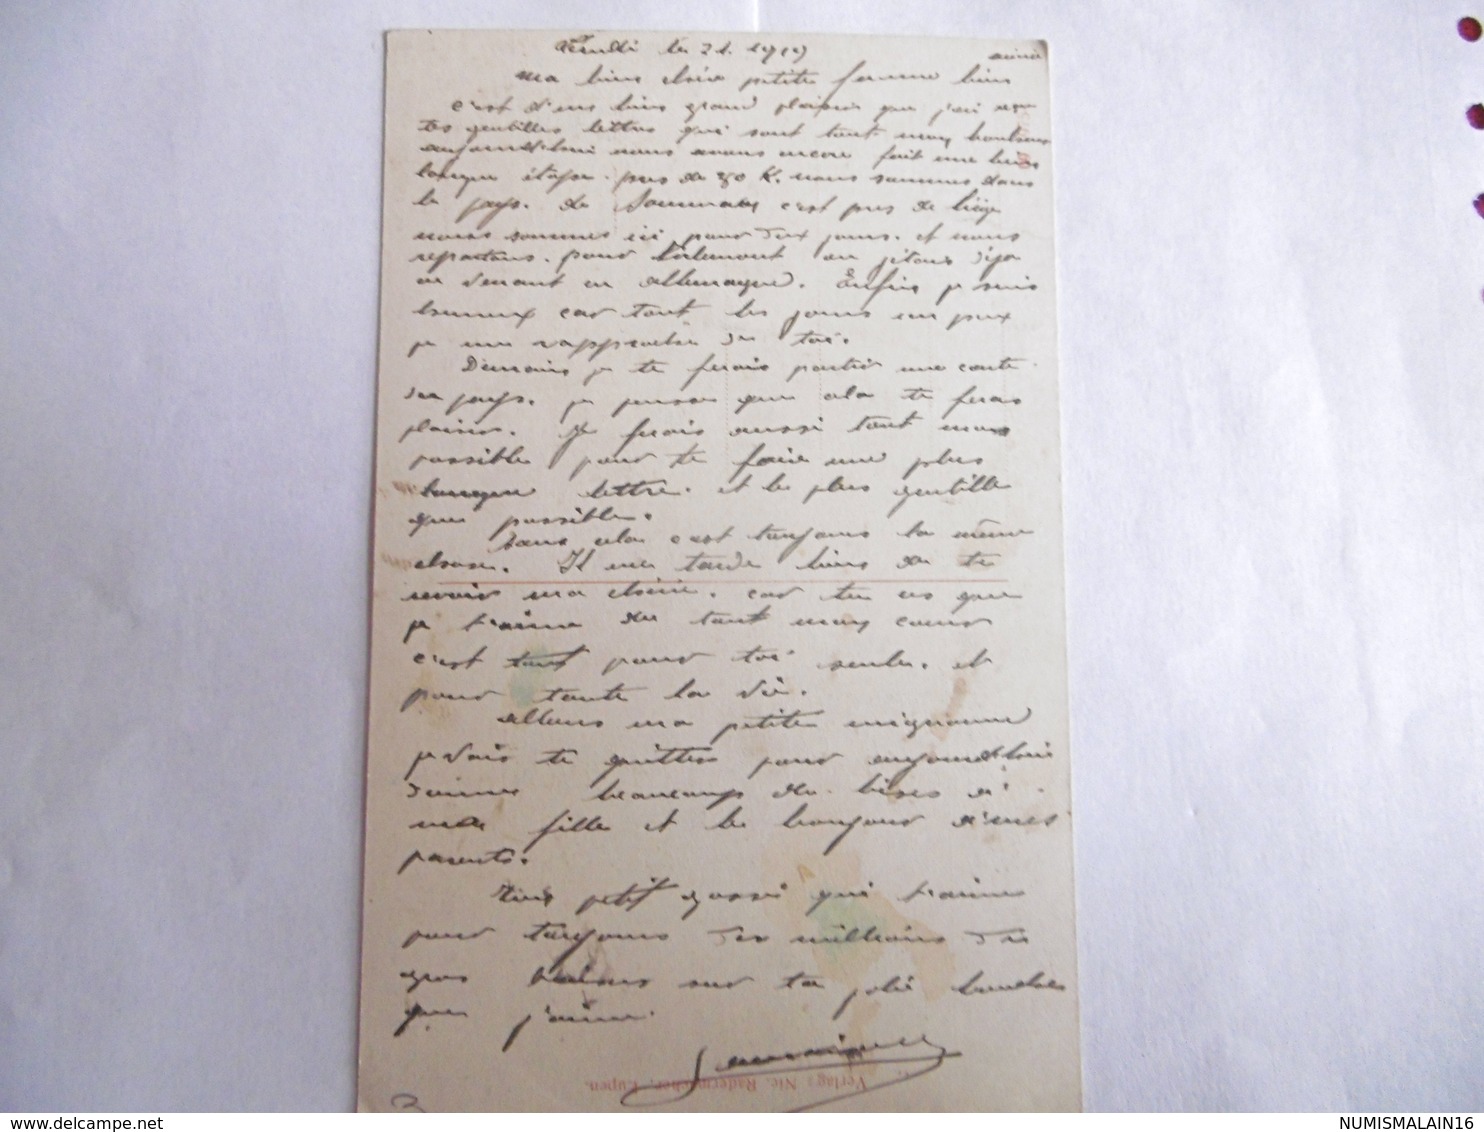 le 21. 1919
ma bien chérie petite femme bien aimée
c'est d'un bien grand plaisir que j'ai reçu
tes gentilles lettres qui sont tout mon bonheur
aujourd'hui nous avons encore fait une bien
longue étape. près de 30 K. nous sommes dans
le pays. de c'est près de Liège
nous sommes ici pour deux jours. et nous
repartons. pour Tirlemont ou j'étais déja
en venant en allemagne. Enfin je suis
heureux car tout les jours un peux
je me rapproche de toi.
Demain je te ferais partir une carte
du pays. je pense que cela te feras
plaisir. Je ferais aussi tout mon
possible pour te faire une plus
longue lettre. et le plus gentille
que possible.
Sans cela c'est toujours la même
chose. Il me tarde bien de te
revoir ma chérie. car tu es que
je t'aime de tout mon coeur
c'est tout pour toi seule. et
pour toute la vie.
allons ma petite mignonne
je vais te quitter pour aujourd'hui
donne beaucoup de bises à
ma fille et le bonjour à mes
parents.
Ton petit gosse qui t'aime
pour toujours des millions de
gros baisers sur ta jolie bouche
que j'aime.
Verlag: Nic. Radermacher, Eupen.
NUMISMALAIN16